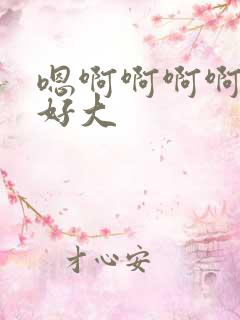 嗯啊啊啊啊
好大
才心安